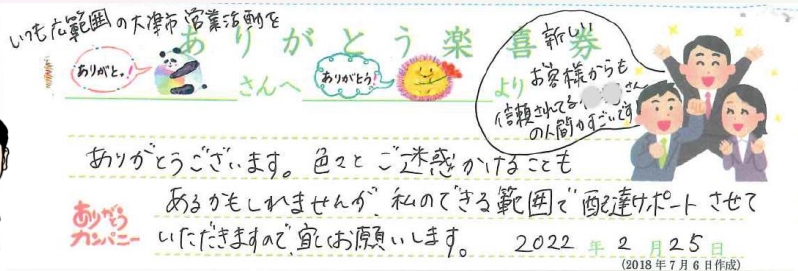 いつも広範囲の大津市営業活動を
ありがとう楽喜券
ありがとっ!
さんへ
ありがとう!
より
新しい
お客様からも
信頼されてる さん
の人間力すごいです
ありがとうございます。色々とご迷惑かけることも
あるかもしれませんが、私のできる範囲で配達サポートさせて
いただきますので、宜しくお願いします。
ありがとうカンパニー
2022年2月25日
(2018年7月6日作成)